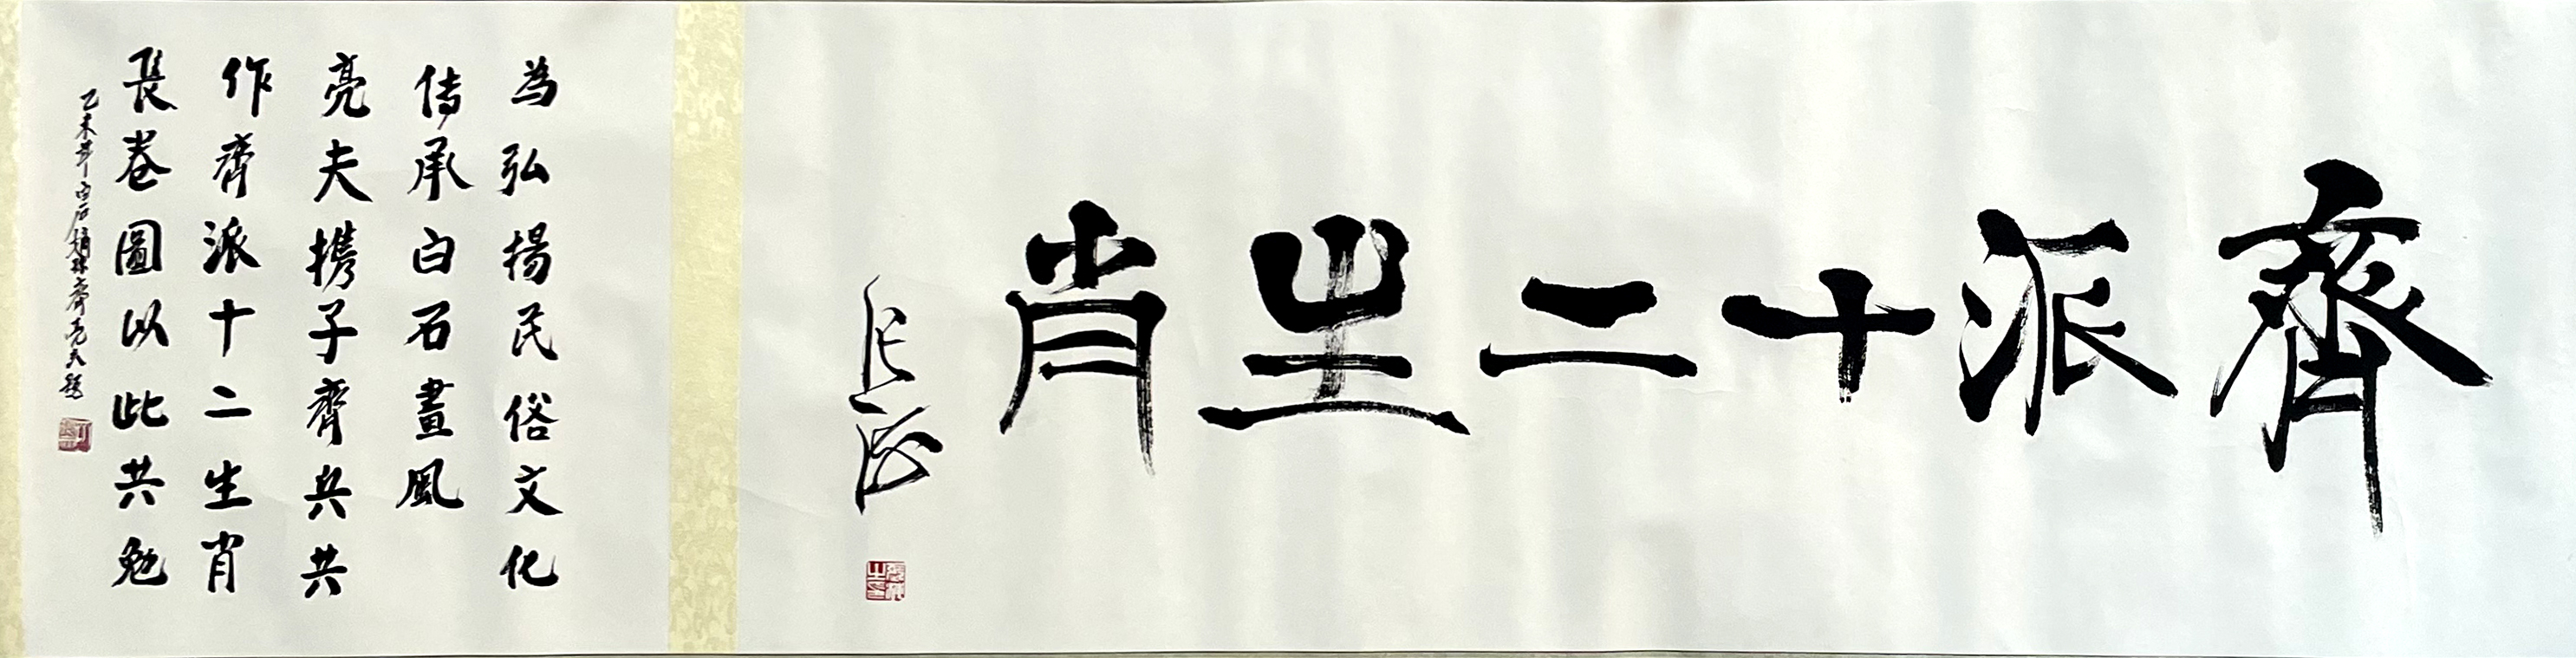 齊派十二生肖
為弘揚民俗文化
传承白石畫風
亮夫携子齊兵共
作齊派十二生肖
長卷圖以此共勉
乙未年白石嫡孫齊亮夫题